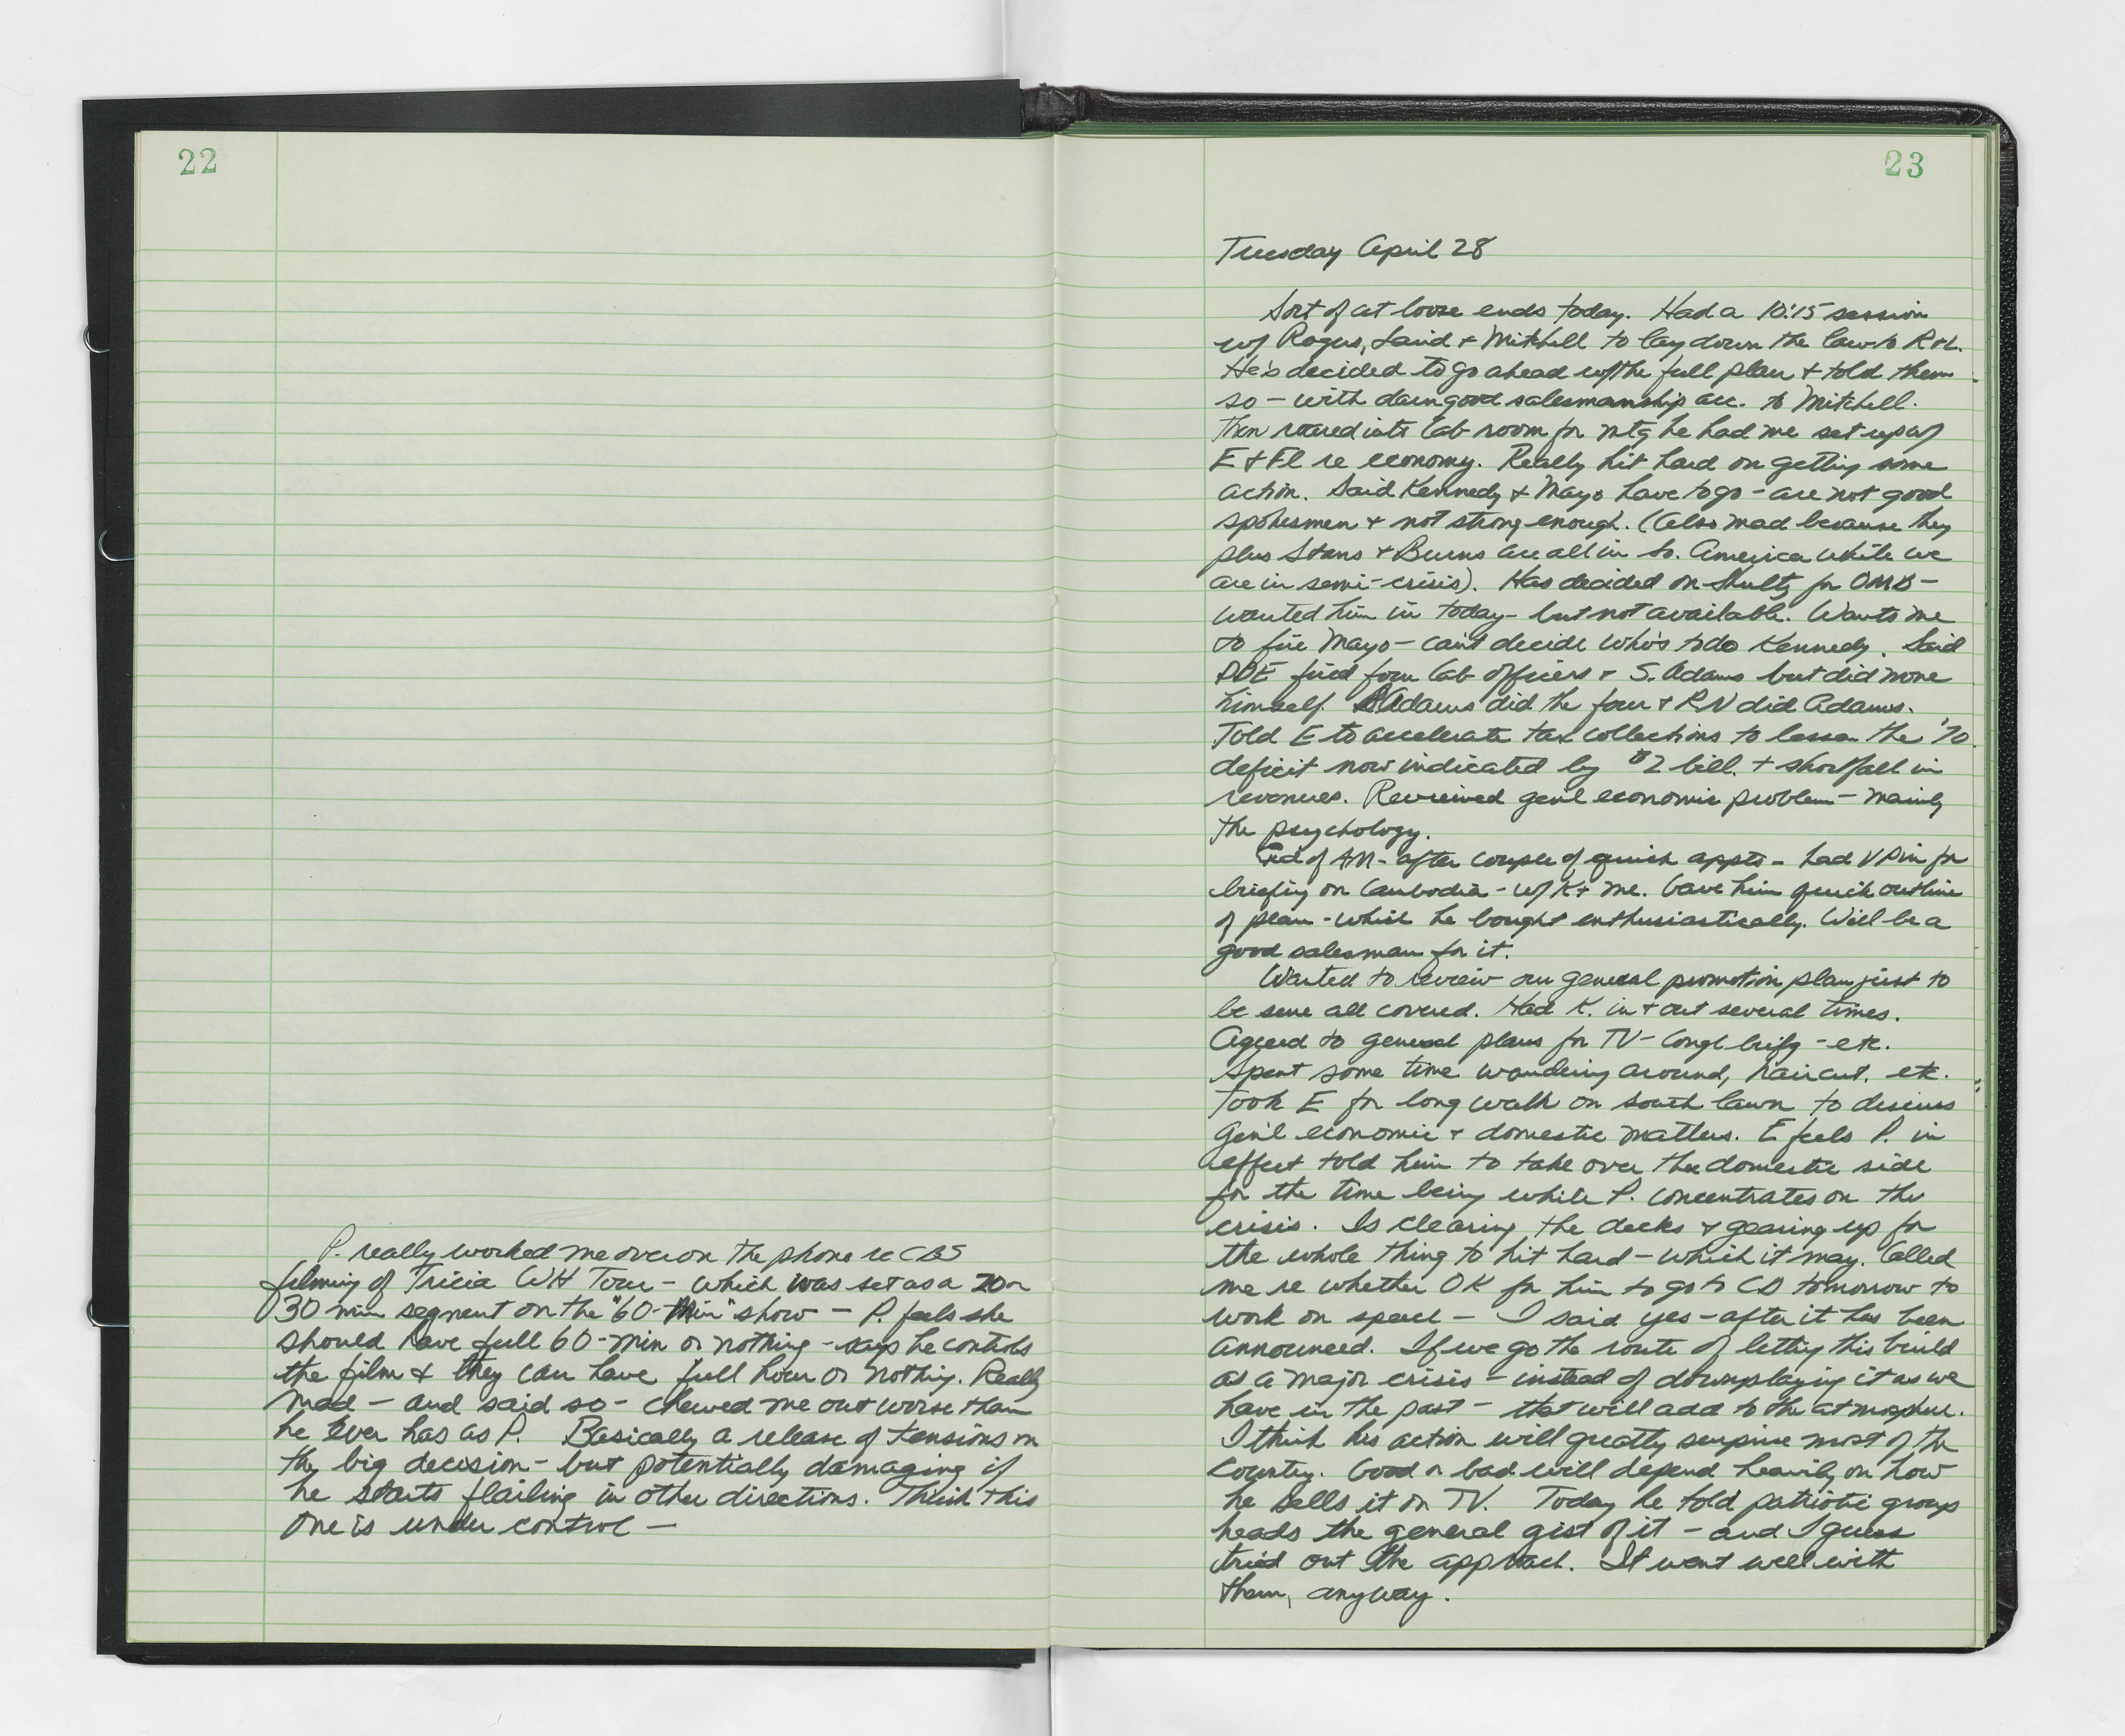 22
P. really worked me over on the phone re CBS
filming of Tricia WH Tour - which was set as a 20 or
30 min segment on the "60-Min" show - P. feels she
should have full 60-min or nothing - says he controls
the film & they can have full hour or nothing. Really
mad - and said so - chewed me out worse than
he ever has as P. Basically a release of tensions on
the big decision - but potentially damaging if
he starts flailing in other directions. Think this
one is under control -
23
Tuesday April 28
Sort of at loose ends today. Had a 10:15 session
w/ Rogers, Laird + Mitchell to lay down the law to R+L.
He's decided to go ahead w/the full plan + told them
so - with damn good salesmanship acc. to Mitchell.
Then roared into Cab room for mtg he had me set up w/
E + Fl re economy. Really hit hard on getting some
action. Said Kennedy + Mayo have to go - are not good
spokesmen + not strong enough. (Also mad because they
plus Stans + Burns are all in So. America while we
are in semi-crisis). Has decided on Shultz for OMB -
wanted him in today - but not available. Wants me
to fire Mayo - can't decide who's to do Kennedy. Said
DDE fired four Cab officers + S. Adams but did none
himself. Adams did the four + RN did Adams.
Told E to accelerate tax collections to lessen the '70
deficit now indicated by $2 bill. + shortfall in
revenues. Reviewed gen'l economic problem - mainly
the psychology.
End of AM - after couple of quick appts - had VP in for
briefing on Cambodia - w/ K + me. Gave him quick outline
of plan - which he bought enthusiastically. Will be a
good salesman for it.
Wanted to review our general promotion plan just to
be sure all covered. Had K. in + out several times.
Agreed to general plans for TV - Congl brifg - etc.
Spent some time wandering around, haircut, etc.
Took E for long walk on south lawn to discuss
gen'l economic + domestic matters. E feels P. in
effect told him to take over the domestic side
for the time being while P. concentrates on the
crisis. Is clearing the decks + gearing up for
the whole thing to hit hard - which it may. Called
me re whether OK for him to go to CD tomorrow to
work on speech - I said yes - after it has been
announced. If we go the route of letting this build
as a major crisis - instead of downplaying it as we
have in the past - that will add to the atmosphere.
I think his action will greatly surprise most of the
country. Good or bad will depend heavily on how
he sells it on TV. Today he told patriotic group
heads the general gist of it - and I guess
tried out the approach. It went well with
them, anyway.